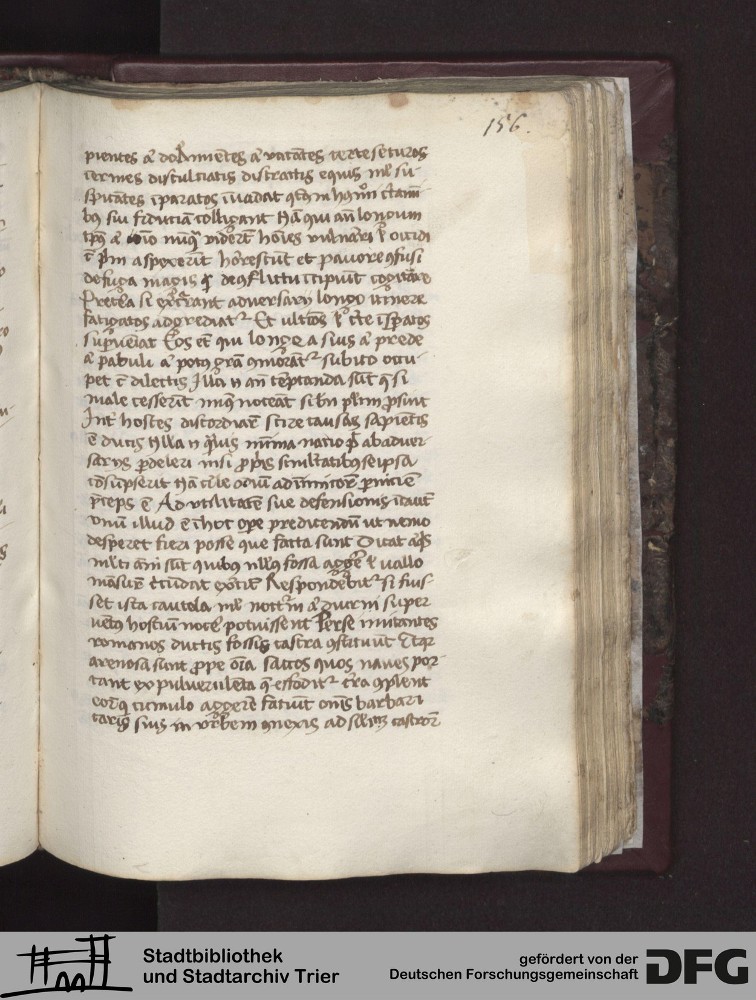 156.
pientes aut dormientes aut vacantes certe securos
inermes discalciatis distractis equis nil su
spicantes imparatos invadat quatenus in huiusmodi certami
bus sui fiduciam colligant Nam qui ante longum
tempus aut omnino numquam viderunt homines vulnerari vel occidi
cum primum aspexerint horrescunt et pavore confusi
de fuga magis quam de conflictu incipiunt cogitare
Preterea si exierrant adversarii longo itinere
fatigatos adgrediatur Et ultimos vel certe insperatos
superveniat Eos etiam qui longe a suis aut prede
aut pabuli aut potus gratia commorantur subito occu
pet cum dilectis Illa enim ante temptanda sunt que si
male cesserint minus noceant si bene plurimum prosint
Inter hostes discordiarum serere causas sapientis
est ducis Nulla enim quamvis minima natio potest ab adver
sariis perdeleri nisi propriis simultatibus se ipsa
consumpserit Nam civile odium ad inimicorum perniciem
preceps est Ad utilitatem sue defensionis incautum
Unum illud est in hoc opere predicendum ut nemo
desperet fieri posse que facta sunt Dicat aliquis
multi anni sunt quibus nullus fossa aggere vel vallo
mansurum circumdat exercitum Respondebitur si fuis
set ista cautela nil nocturni aut diurni super
ventus hostium nocere potuissent Perse imitantes
romanos ductis fossis castra constituunt Et quia
arenosa sunt prope omnia saccos quos inanes por
tant ex pulverulenta que effoditur terra complent
eorumque cumulo aggerem faciunt omnes barbari
carris suis in orbem connexis ad similitudinem castrorum
Stadtbibliothek
und Stadtarchiv Trier
gefördert von der
Deutschen Forschungsgemeinschaft
DFG